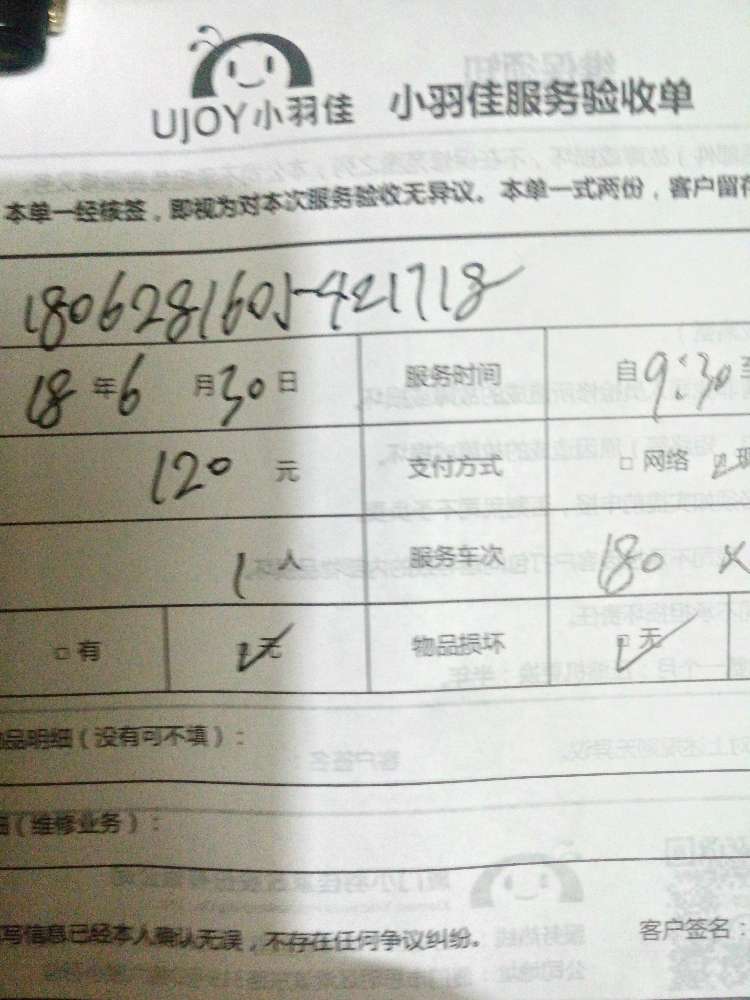 UJOY小羽佳 小羽佳服务验收单
本单一经核签，即视为对本次服务验收无异议。本单一式两份，客户留存
1806281605-421718
18年6月30日 服务时间 自9:30至
120元 支付方式 □ 网络 ☑现
1人 服务车次 180
□ 有 ☑无 物品损坏 ☑无
品明细（没有可不填）：
（维修业务）：
写信息已经本人确认无误，不存在任何争议纠纷。 客户签名：